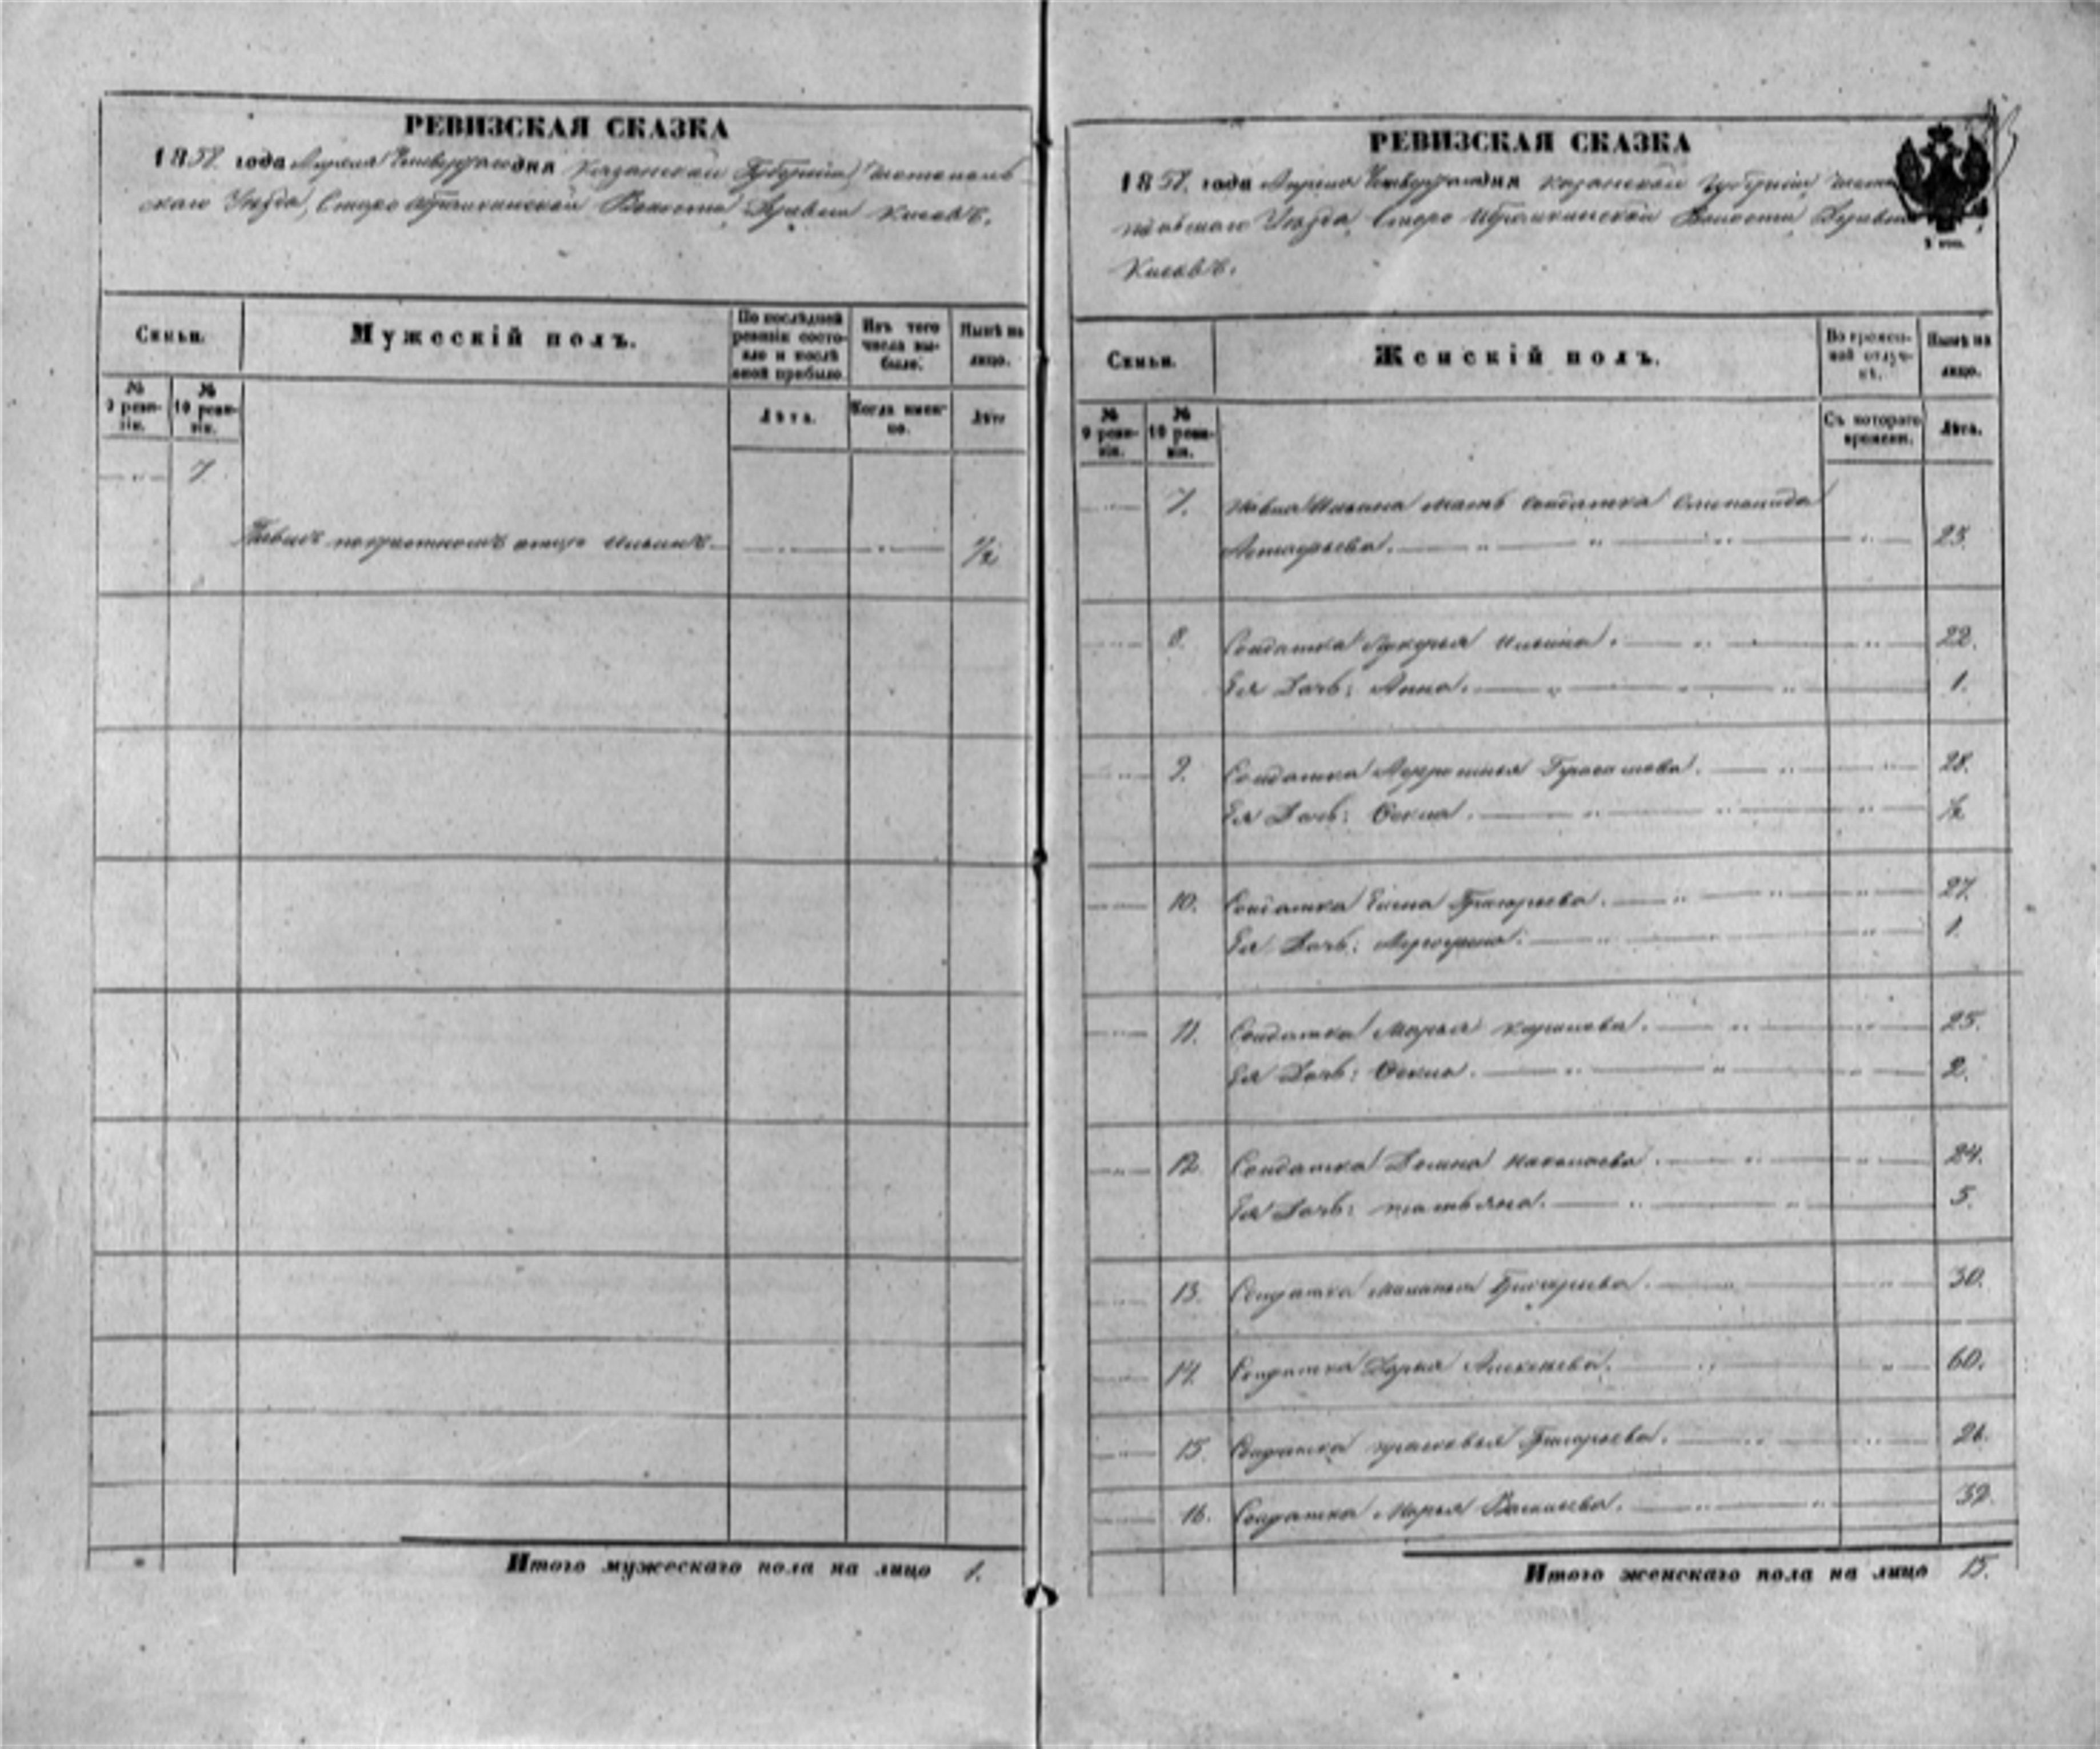 РЕВИЗСКАЯ СКАЗКА
1858 года Апреля Четвертаго дня Казанской Губерніи Чистополь
скаго Уѣзда, Старо Ибрайкинской Волости Деревни Кисовъ.
Семьи.
Мужескій полъ.
По послѣдней ревизіи состояло и послѣ оной прибыло.
Изъ того числа выбыло.
Нынѣ на лицо.
№ 9 ревизіи.
№ 10 ревизіи.
Лѣта.
Когда именно.
Лѣта
7
Павелъ по крестномъ отцѣ Ильинъ.
1/2
Итого мужескаго пола на лицо 1.
РЕВИЗСКАЯ СКАЗКА
1858. года Апреля Четвертаго дня Казанской Губерніи Чисто
польскаго Уѣзда Старо Ибрайкинской Волости Деревни
Кисовъ.
Семьи.
Женскій полъ.
Во временной отлучкѣ.
Нынѣ на лицо.
№ 9 ревизіи.
№ 10 ревизіи.
Съ котораго времени.
Лѣта.
7. Павла Ильина мать солдатка Степанида
Астафьева. 23.
8. Солдатка Лукерья Ильина. 22.
Ея Дочь: Анна. 1.
9. Солдатка Герасимова. 28.
Ея Дочь: Фекла. 1/2
10. Солдатка Елена Григорьева. 27.
Ея Дочь: 1.
11. Солдатка Марья Карпова. 25.
Ея Дочь: Фекла. 2.
12. Солдатка Домна Николаева. 24.
Ея Дочь: Татьяна. 5.
13. Солдатка Маланья Григорьева. 30.
14. Солдатка Дарья Алексѣева. 60.
15. Солдатка Прасковья Григорьева. 26.
16. Солдатка Марья Васильева. 32.
Итого женскаго пола на лицо 15.